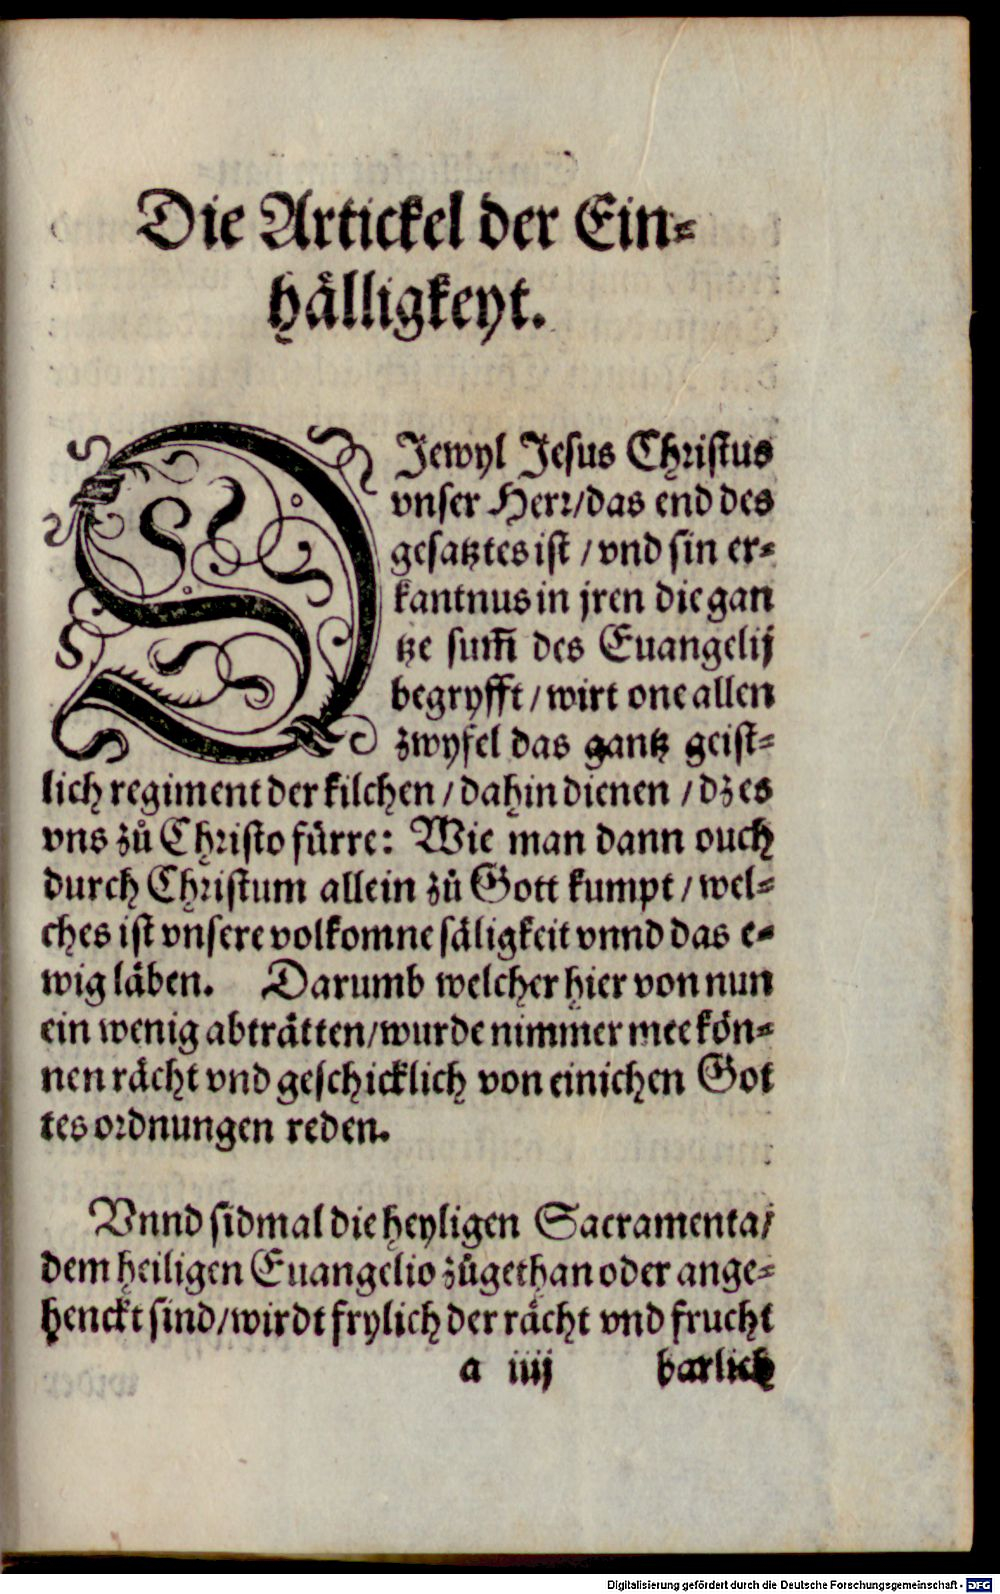 Die Artickel der Ein⸗
hälligkeyt.
DJewyl Jesus Christus
vnser Herr/das end des
gesatztes ist / vnd sin er⸗
kantnus in jren die gan
tze sum̃ des Euangelij
begryfft / wirt one allen
zwyfel das gantz geist⸗
lich regiment der kilchen / dahin dienen / dz es
vns zů Christo fürre: Wie man dann ouch
durch Christum allein zů Gott kumpt / wel⸗
ches ist vnsere volkomne säligkeit vnnd das e⸗
wig läben. Darumb welcher hier von nun
ein wenig abträtten/wurde nimmer mee kön⸗
nen rächt vnd geschicklich von einichen Got
tes ordnungen reden.
Vnnd sidmal die heyligen Sacramenta/
dem heiligen Euangelio zůgethan oder ange⸗
henckt sind/wirdt frylich der rächt vnd frucht
a iiij barlich
Digitalisierung gefördert durch die Deutsche Forschungsgemeinschaft - DFG